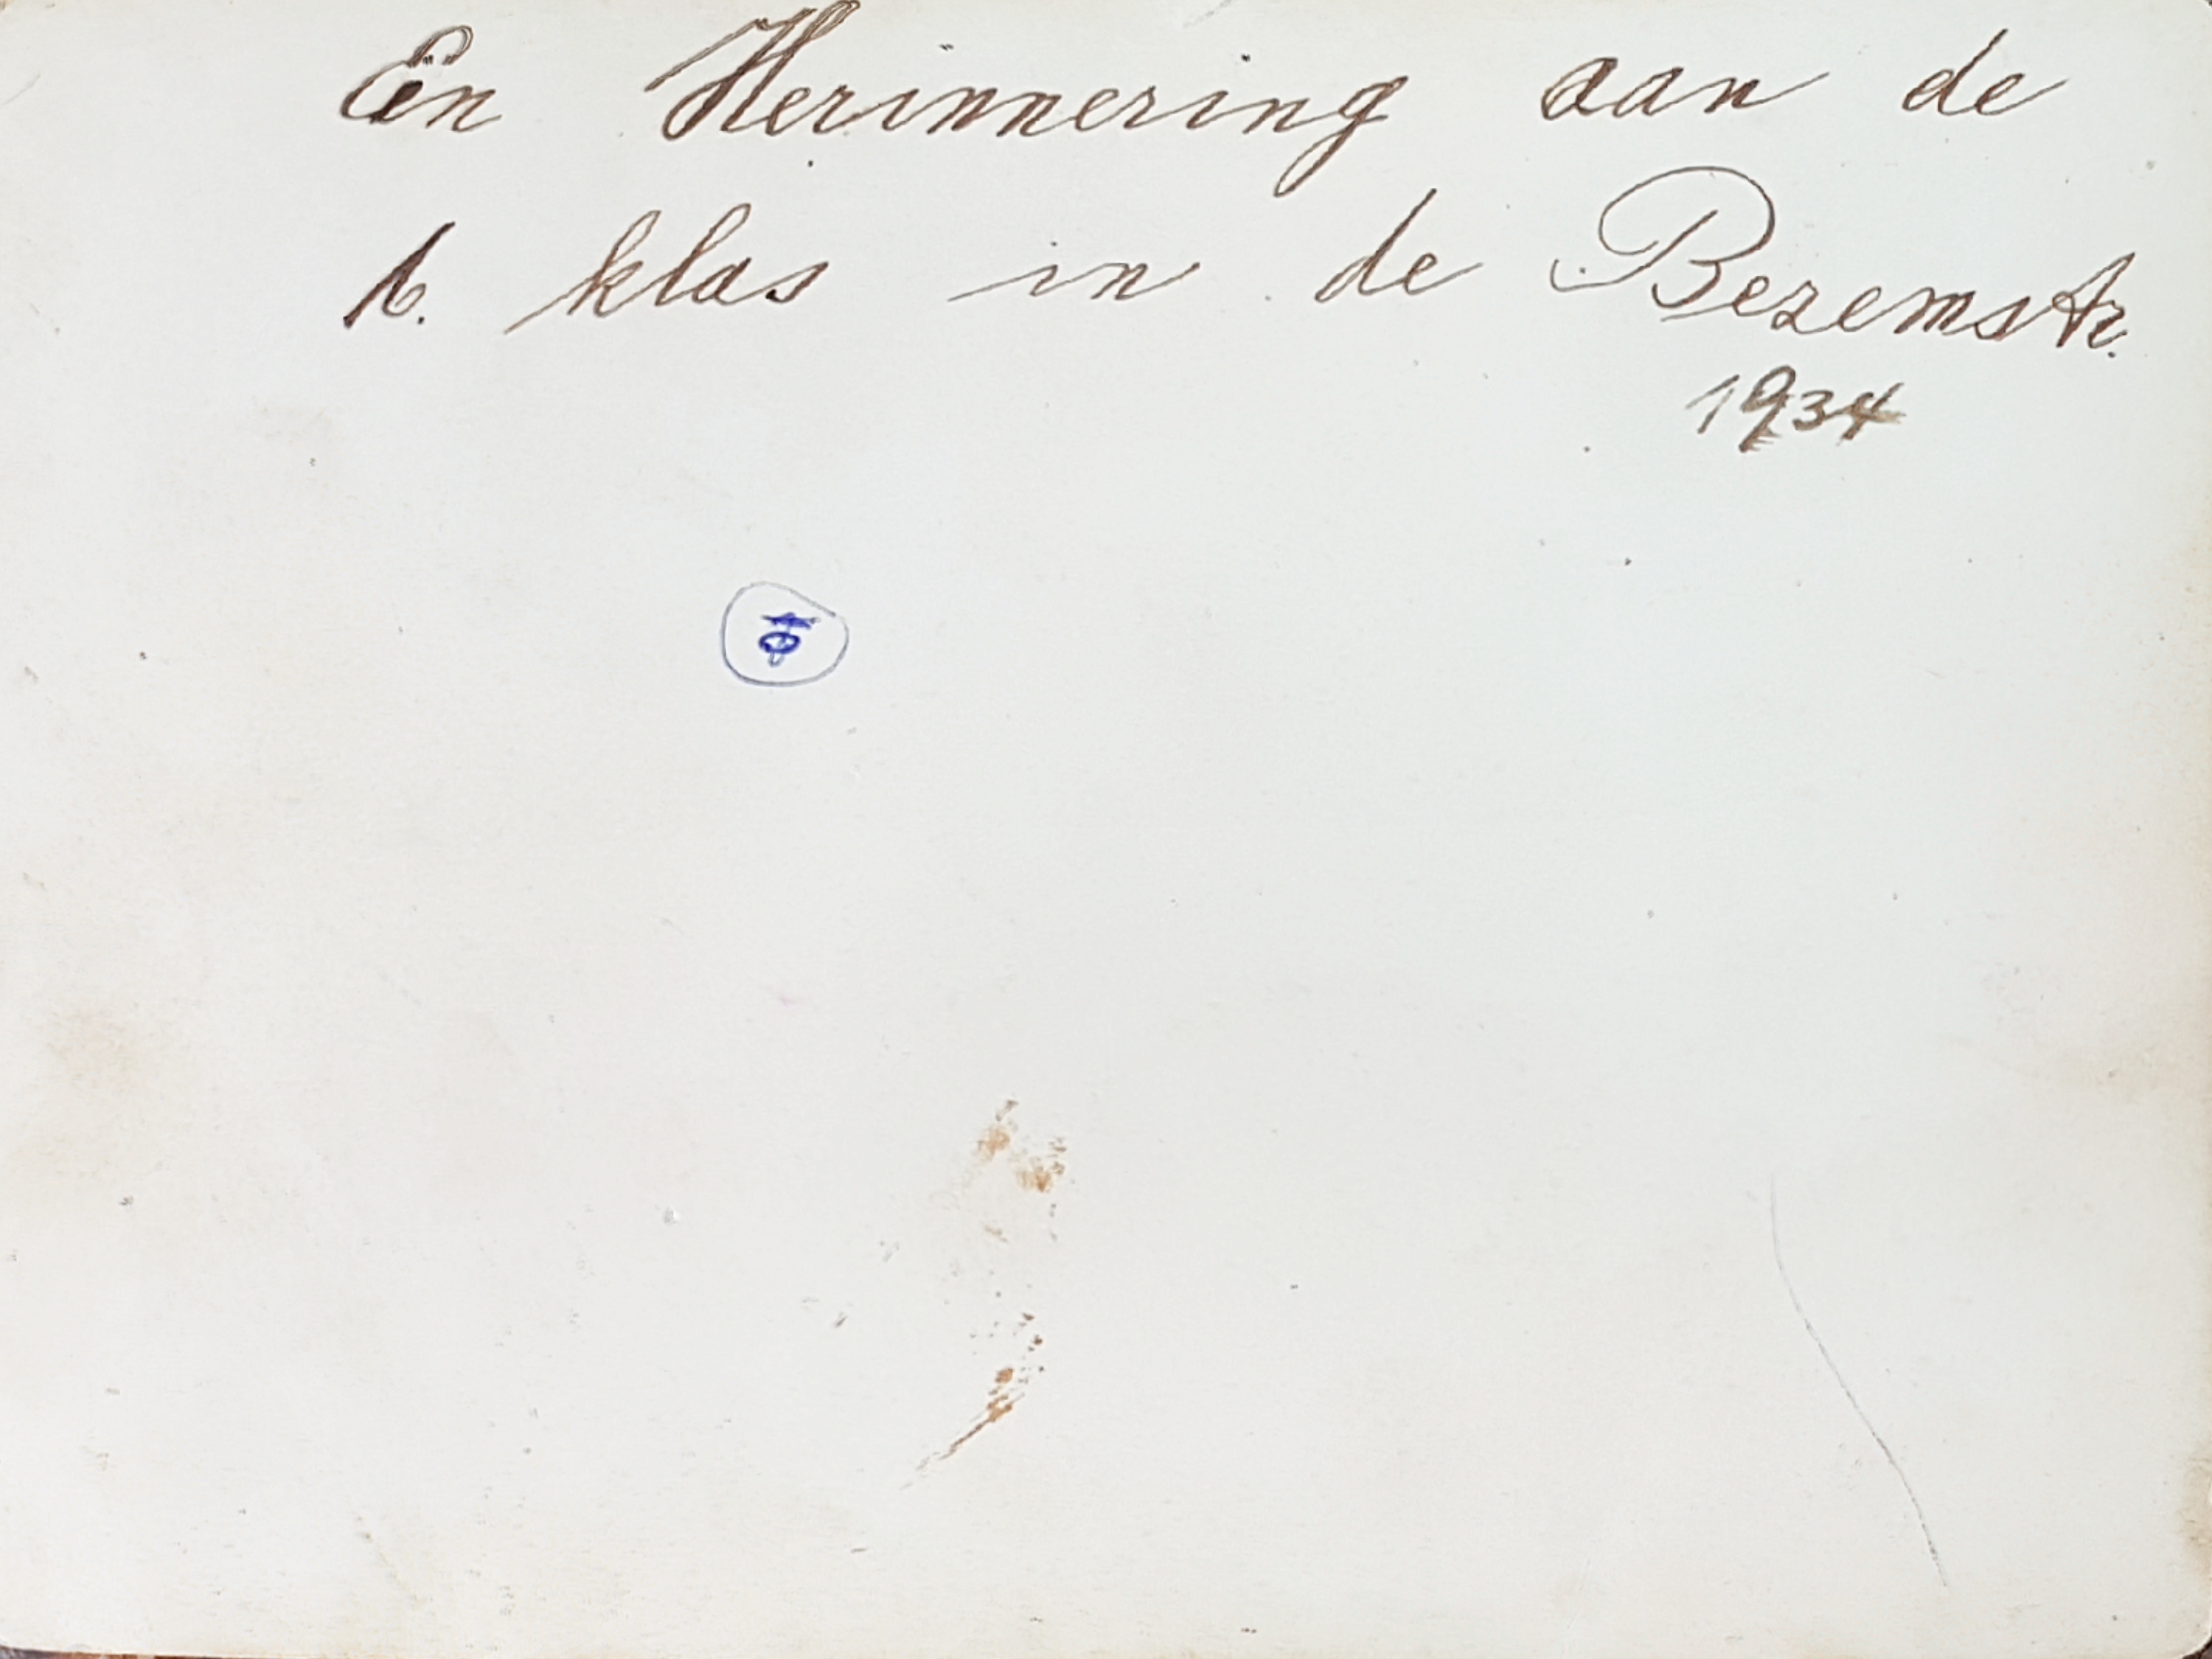 En Herinnering aan de
6. klas in de Bezemstr.
1934